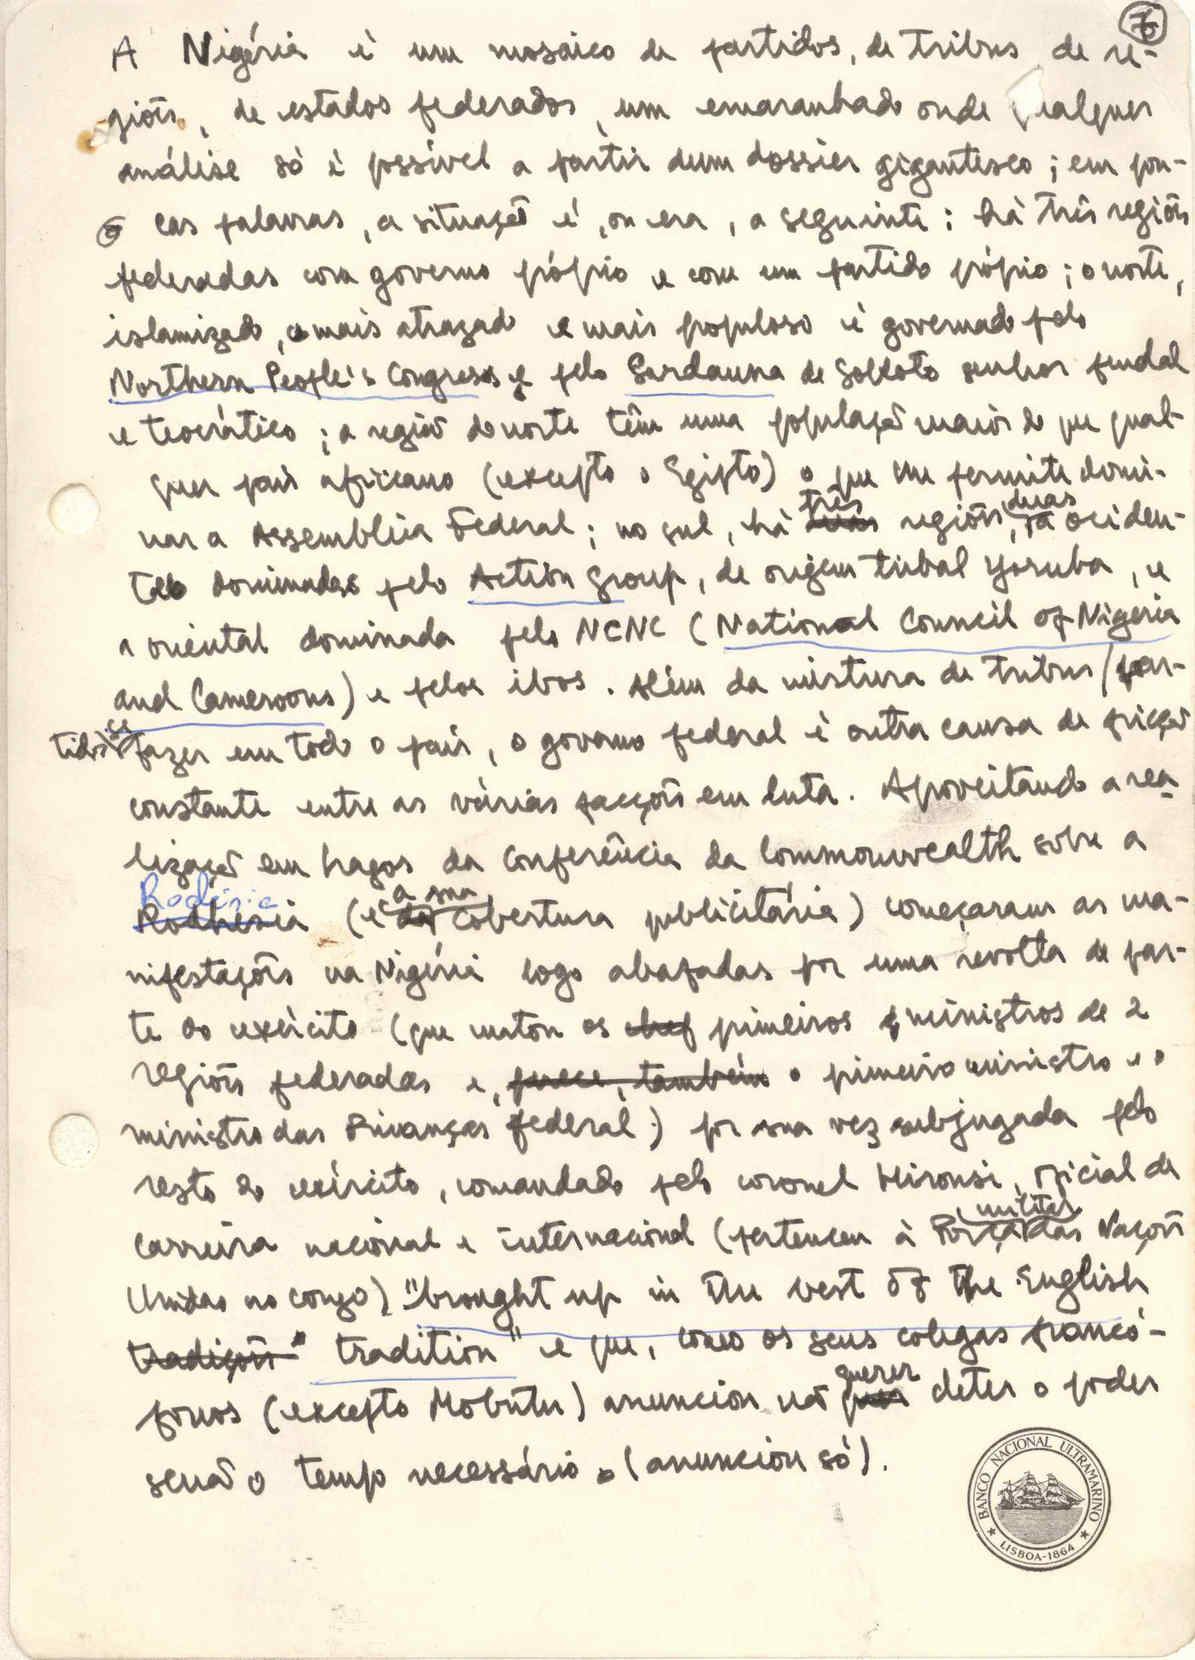 76
A Nigéria é um mosaico de partidos, de tribus de re-
giões, de estados federados, um emaranhado onde qualquer
análise só é possível a partir dum dossier gigantesco; em pou-
cas palavras, a situação é, ou era, a seguinte: há três regiões
federadas com governo própio e com um partido própio; o norte,
islamizado, o mais atrazado e mais populoso é governado pelo
Northern People's Congress e pelo Sardauna de Sokoto senhor feudal
e teocrático; a região do norte têm uma população maior do que qual-
quer país africano (excepto o Egipto) o que lhe permite domi-
nar a Assembleia Federal; no sul, há três regiões, duas a ociden-
tal dominadas pelo Action Group, de origem tribal Yoruba, e
a oriental dominada pelo NCNC (National Council of Nigéria
and Cameroons) e pelos ibos. Além da mistura de tribus / par-
tidos se fazer em todo o país, o governo federal é outra causa de fricção
constante entre as várias facções em luta. Aproveitando a rea-
lização em Lagos da Conferência da Commonwealth sobre a
Rodésia
Rodhésia (e a sua cobertura publicitária) começaram as ma-
nifestações na Nigéria logo abafadas por uma revolta de par-
te do exército (que matou os chef primeiros ministros de 2
regiões federadas e, parece, também o primeiro ministro e o
ministro das Finanças federal) por sua vez subjugada pelo
resto do exército, comandado pelo coronel Hironsi, oficial de
carreira nacional e internacional (pertenceu à Força militar das Nações
Unidas no Congo), "brought up in the best of the English
tradições" tradition" e que, como os seus colegas francó-
fonos (excepto Mobutu) anunciou não querer deter o poder
senão o tempo necessário (anunciou só).
BANCO NACIONAL ULTRAMARINO
LISBOA-1864